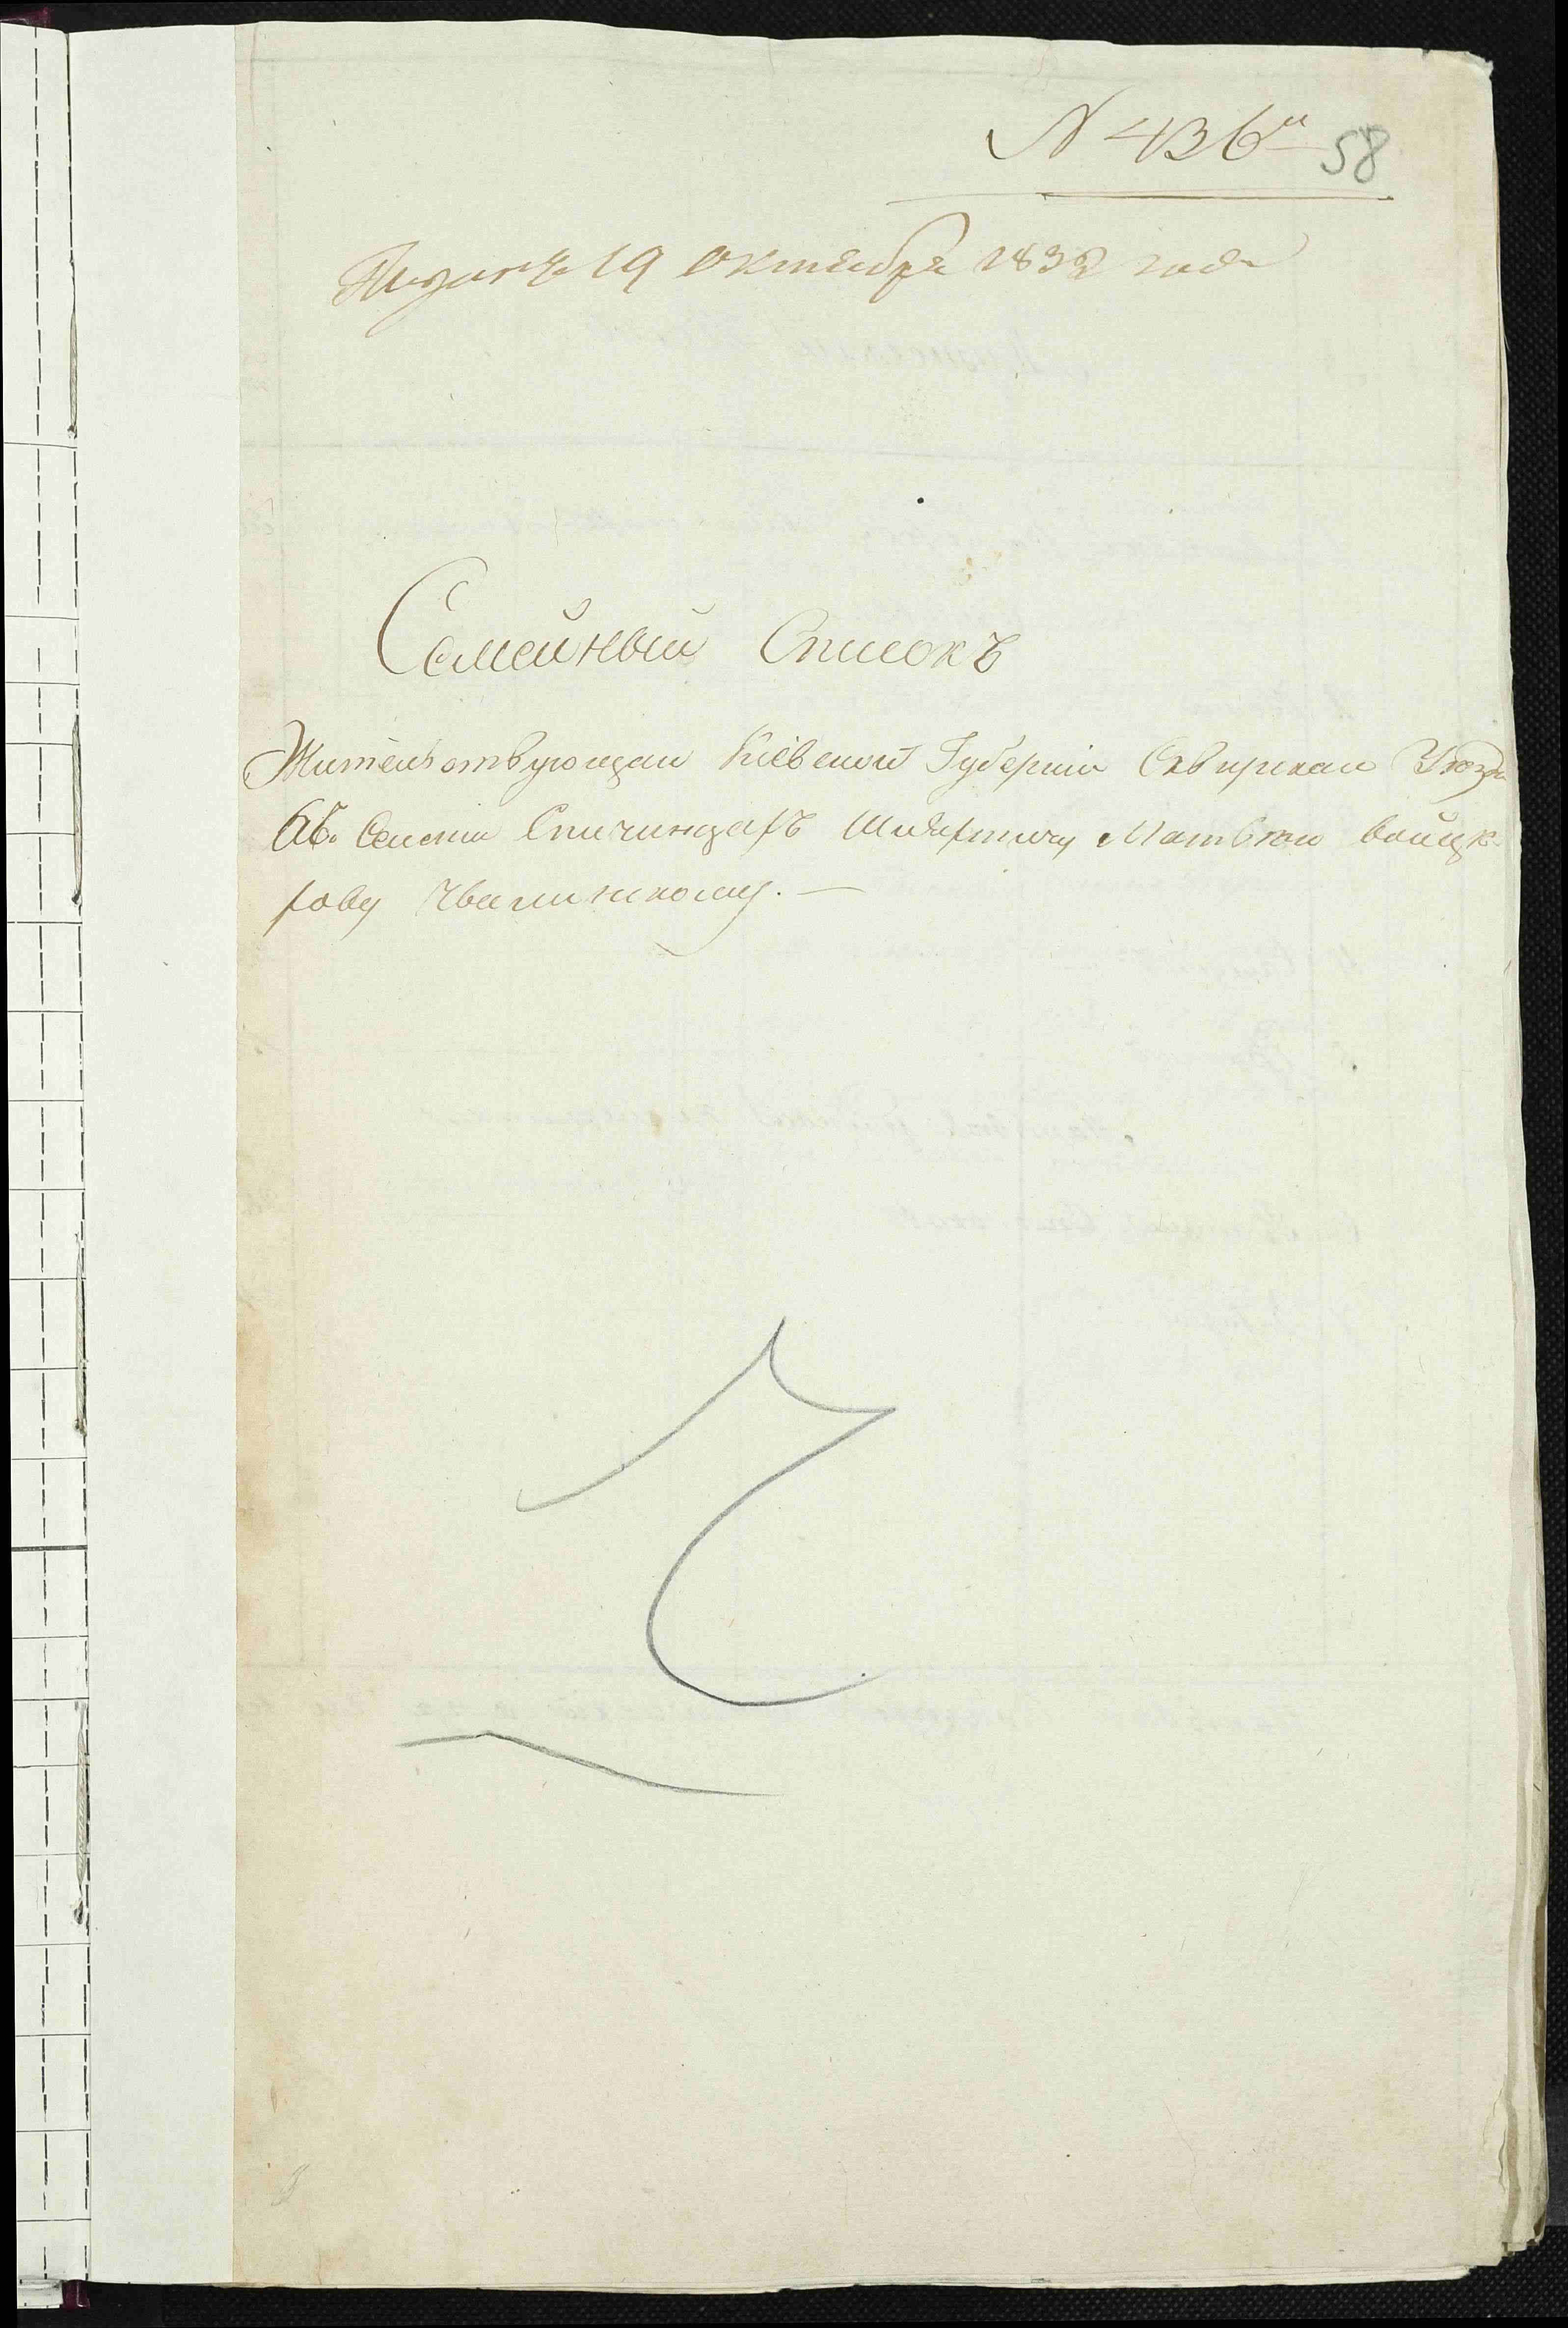 N 436й 58
Поданъ 19 Октября 1832 года
Семейный Списокъ
Жительствующаи Кіевской Губерніи Сквирскаи Уѣзда
Въ Селении Спичинцахъ Шляхтичу Матвѣю Войцѣ-
хову